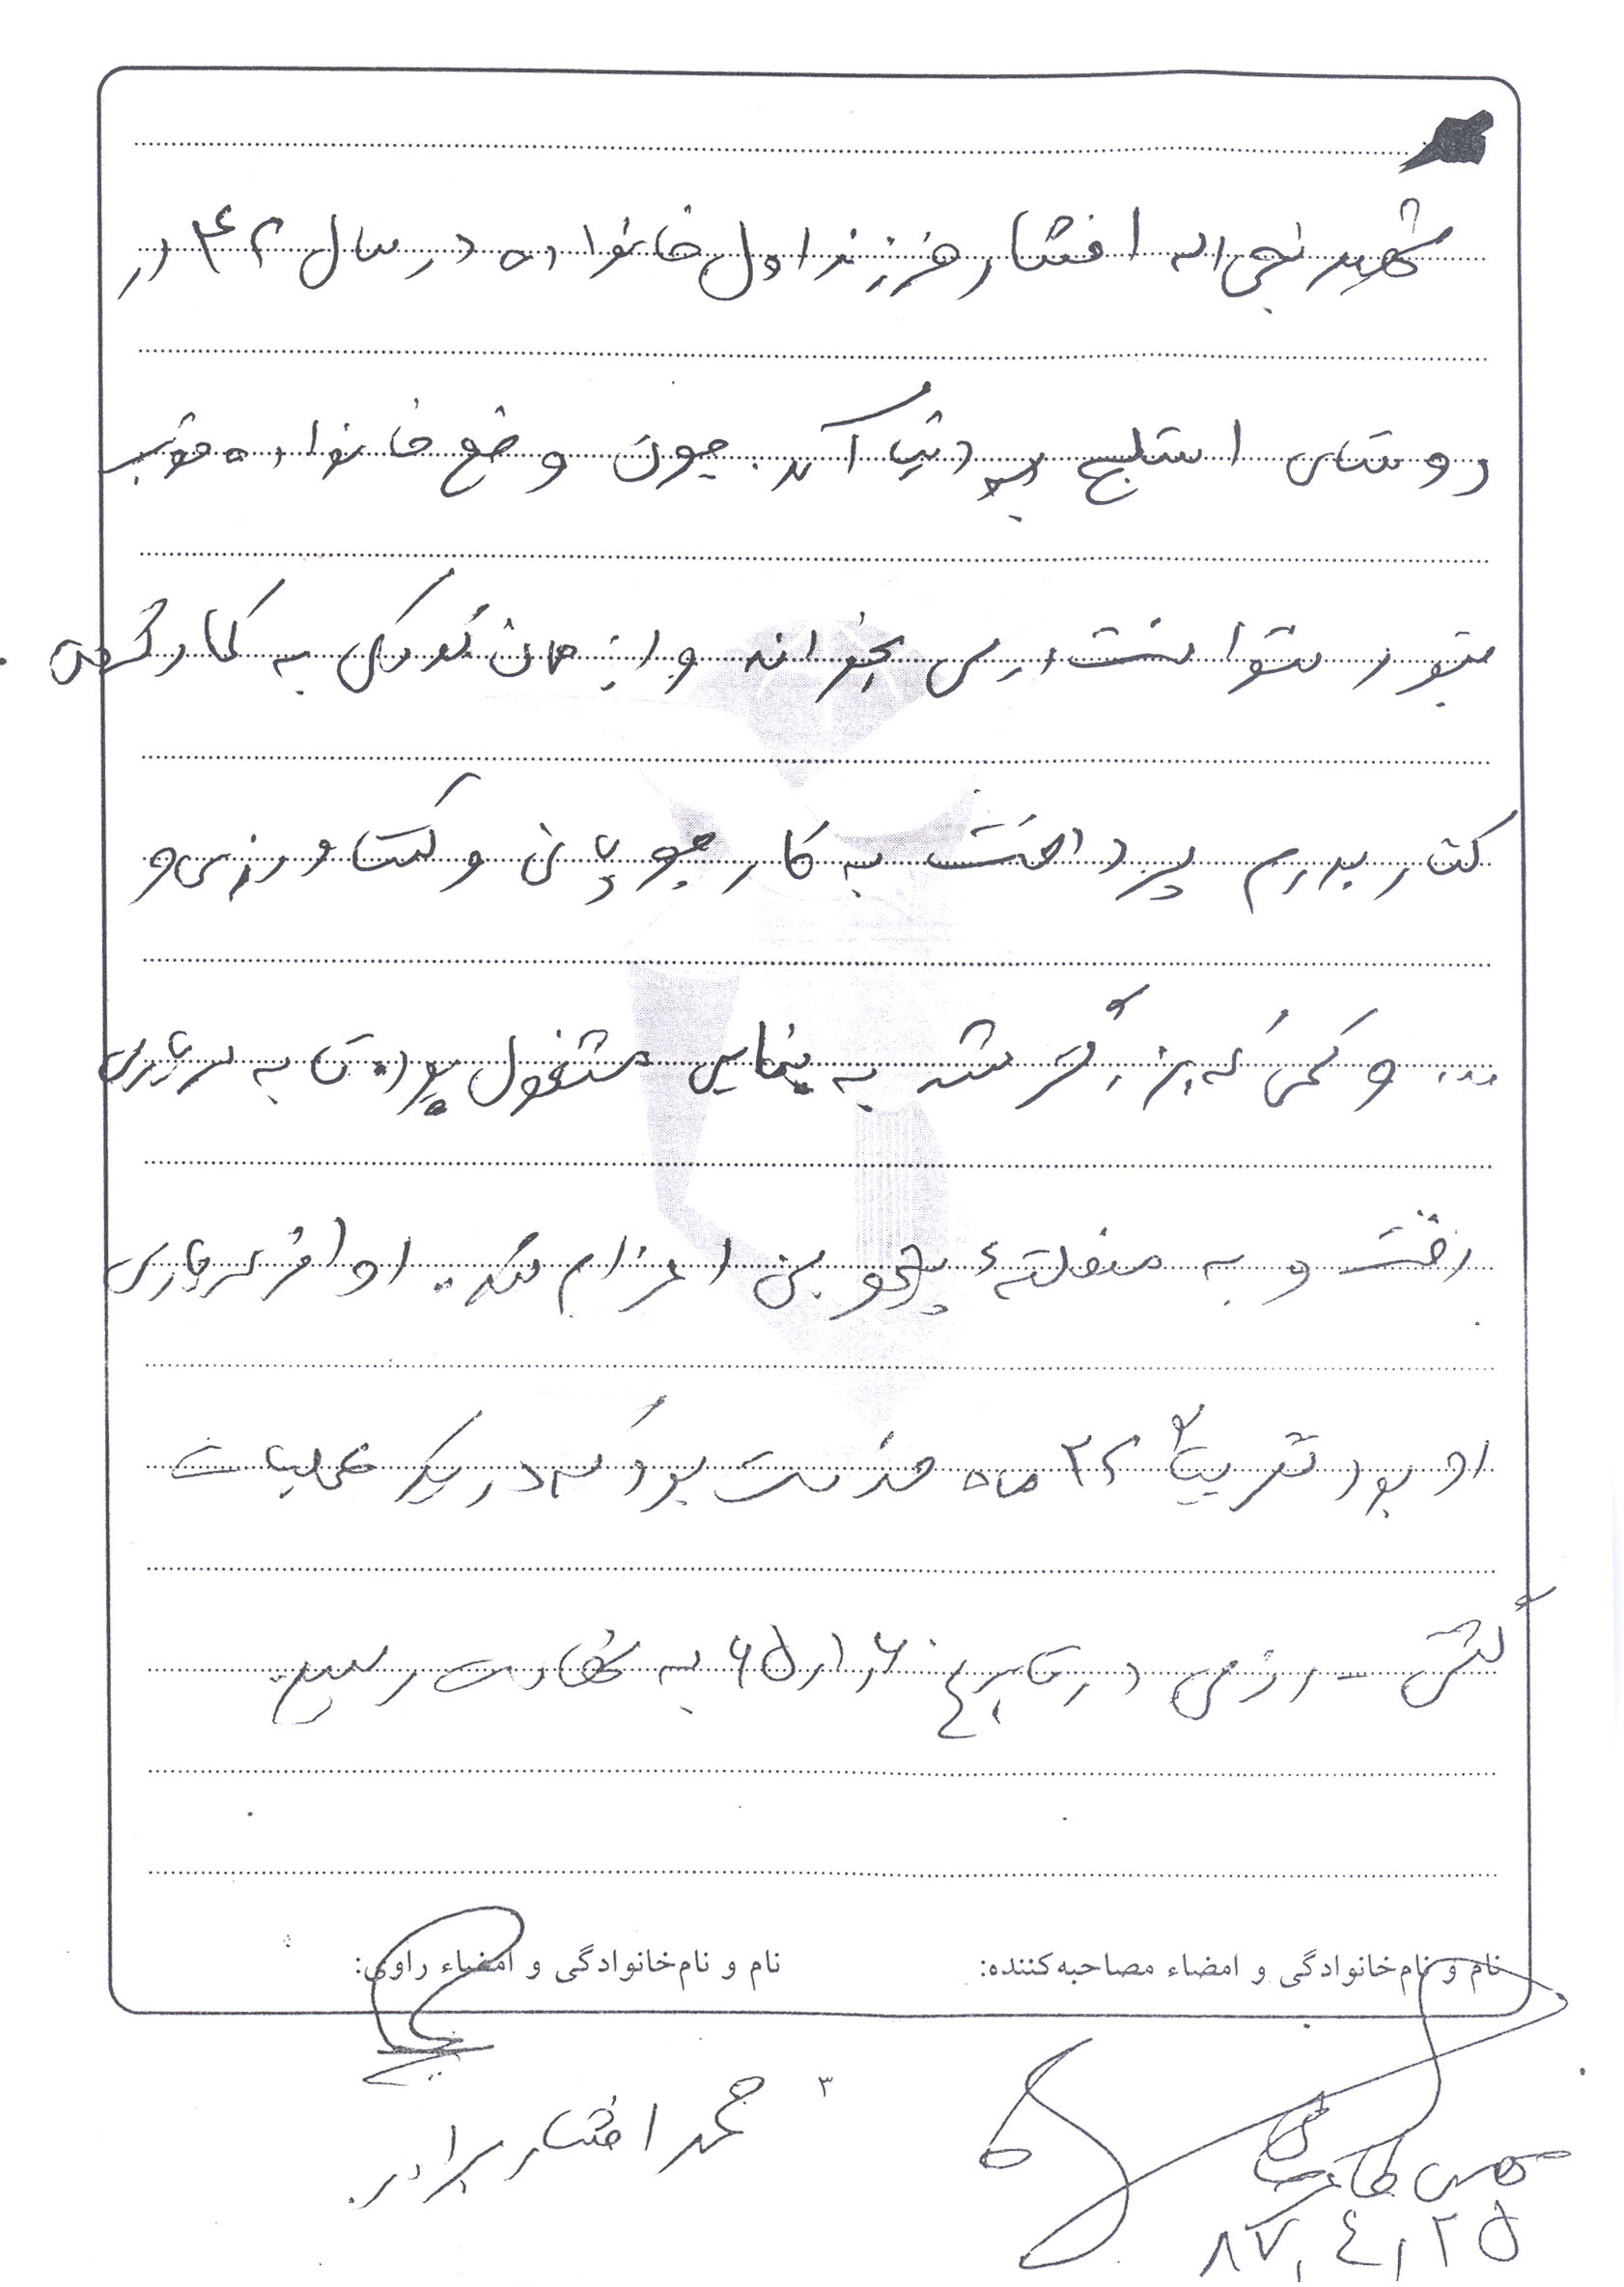 شهید نجی اله افشار فرزند اول خانواده در سال ۴۲ در
روستای استلج به دنیا آمد. چون وضع خانواده خوب
نبود نتوانست درس بخواند و از همان کودکی به کارگری
کنار پدرم پرداخت به کار چوپانی و کشاورزی و
... و کمی که بزرگتر شد به بنایی مشغول بود تا به سربازی
رفت و به منطقهٔ پنجوین اعزام شد. اواخر سربازی
او بود تقریباً ۲۲ ماه خدمت بود که در یک عملیات
گشتی - رزمی در تاریخ ۶۵/۱/۶ به شهادت رسید.
نام و نام‌خانوادگی و امضاء مصاحبه‌کننده:
نام و نام‌خانوادگی و امضاء راوی:
۳
محمد افشار برادر
۸۷/۴/۲۵